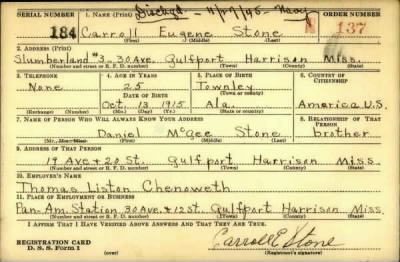 Dischgd. 11/17/45 - Navy
SERIAL NUMBER 1. NAME (Print) ORDER NUMBER
184 Carroll Eugene Stone 137
(First) (Middle) (Last)
2. ADDRESS (Print)
Slumberland #3 - 30 Ave. Gulfport Harrison Miss.
(Number and street or R. F. D. number) (Town) (County) (State)
3. TELEPHONE 4. AGE IN YEARS 5. PLACE OF BIRTH 6. COUNTRY OF CITIZENSHIP
None 25 Townley
DATE OF BIRTH (Town or county)
Oct. 13 1915 Ala. America U.S.
(Exchange) (Number) (Mo.) (Day) (Yr.) (State or country)
7. NAME OF PERSON WHO WILL ALWAYS KNOW YOUR ADDRESS 8. RELATIONSHIP OF THAT PERSON
Daniel McGee Stone brother
(Mr., Mrs., Miss) (First) (Middle) (Last)
9. ADDRESS OF THAT PERSON
19 Ave + 20 St. Gulfport Harrison Miss.
(Number and street or R. F. D. number) (Town) (County) (State)
10. EMPLOYER'S NAME
Thomas Liston Chenoweth
11. PLACE OF EMPLOYMENT OR BUSINESS
Pan-Am. Station 30 Ave. + 12 St. Gulfport Harrison Miss
(Number and street or R. F. D. number) (Town) (County) (State)
I AFFIRM THAT I HAVE VERIFIED ABOVE ANSWERS AND THAT THEY ARE TRUE.
REGISTRATION CARD
D. S. S. Form 1 (over) Carroll E Stone
(Registrant's signature)